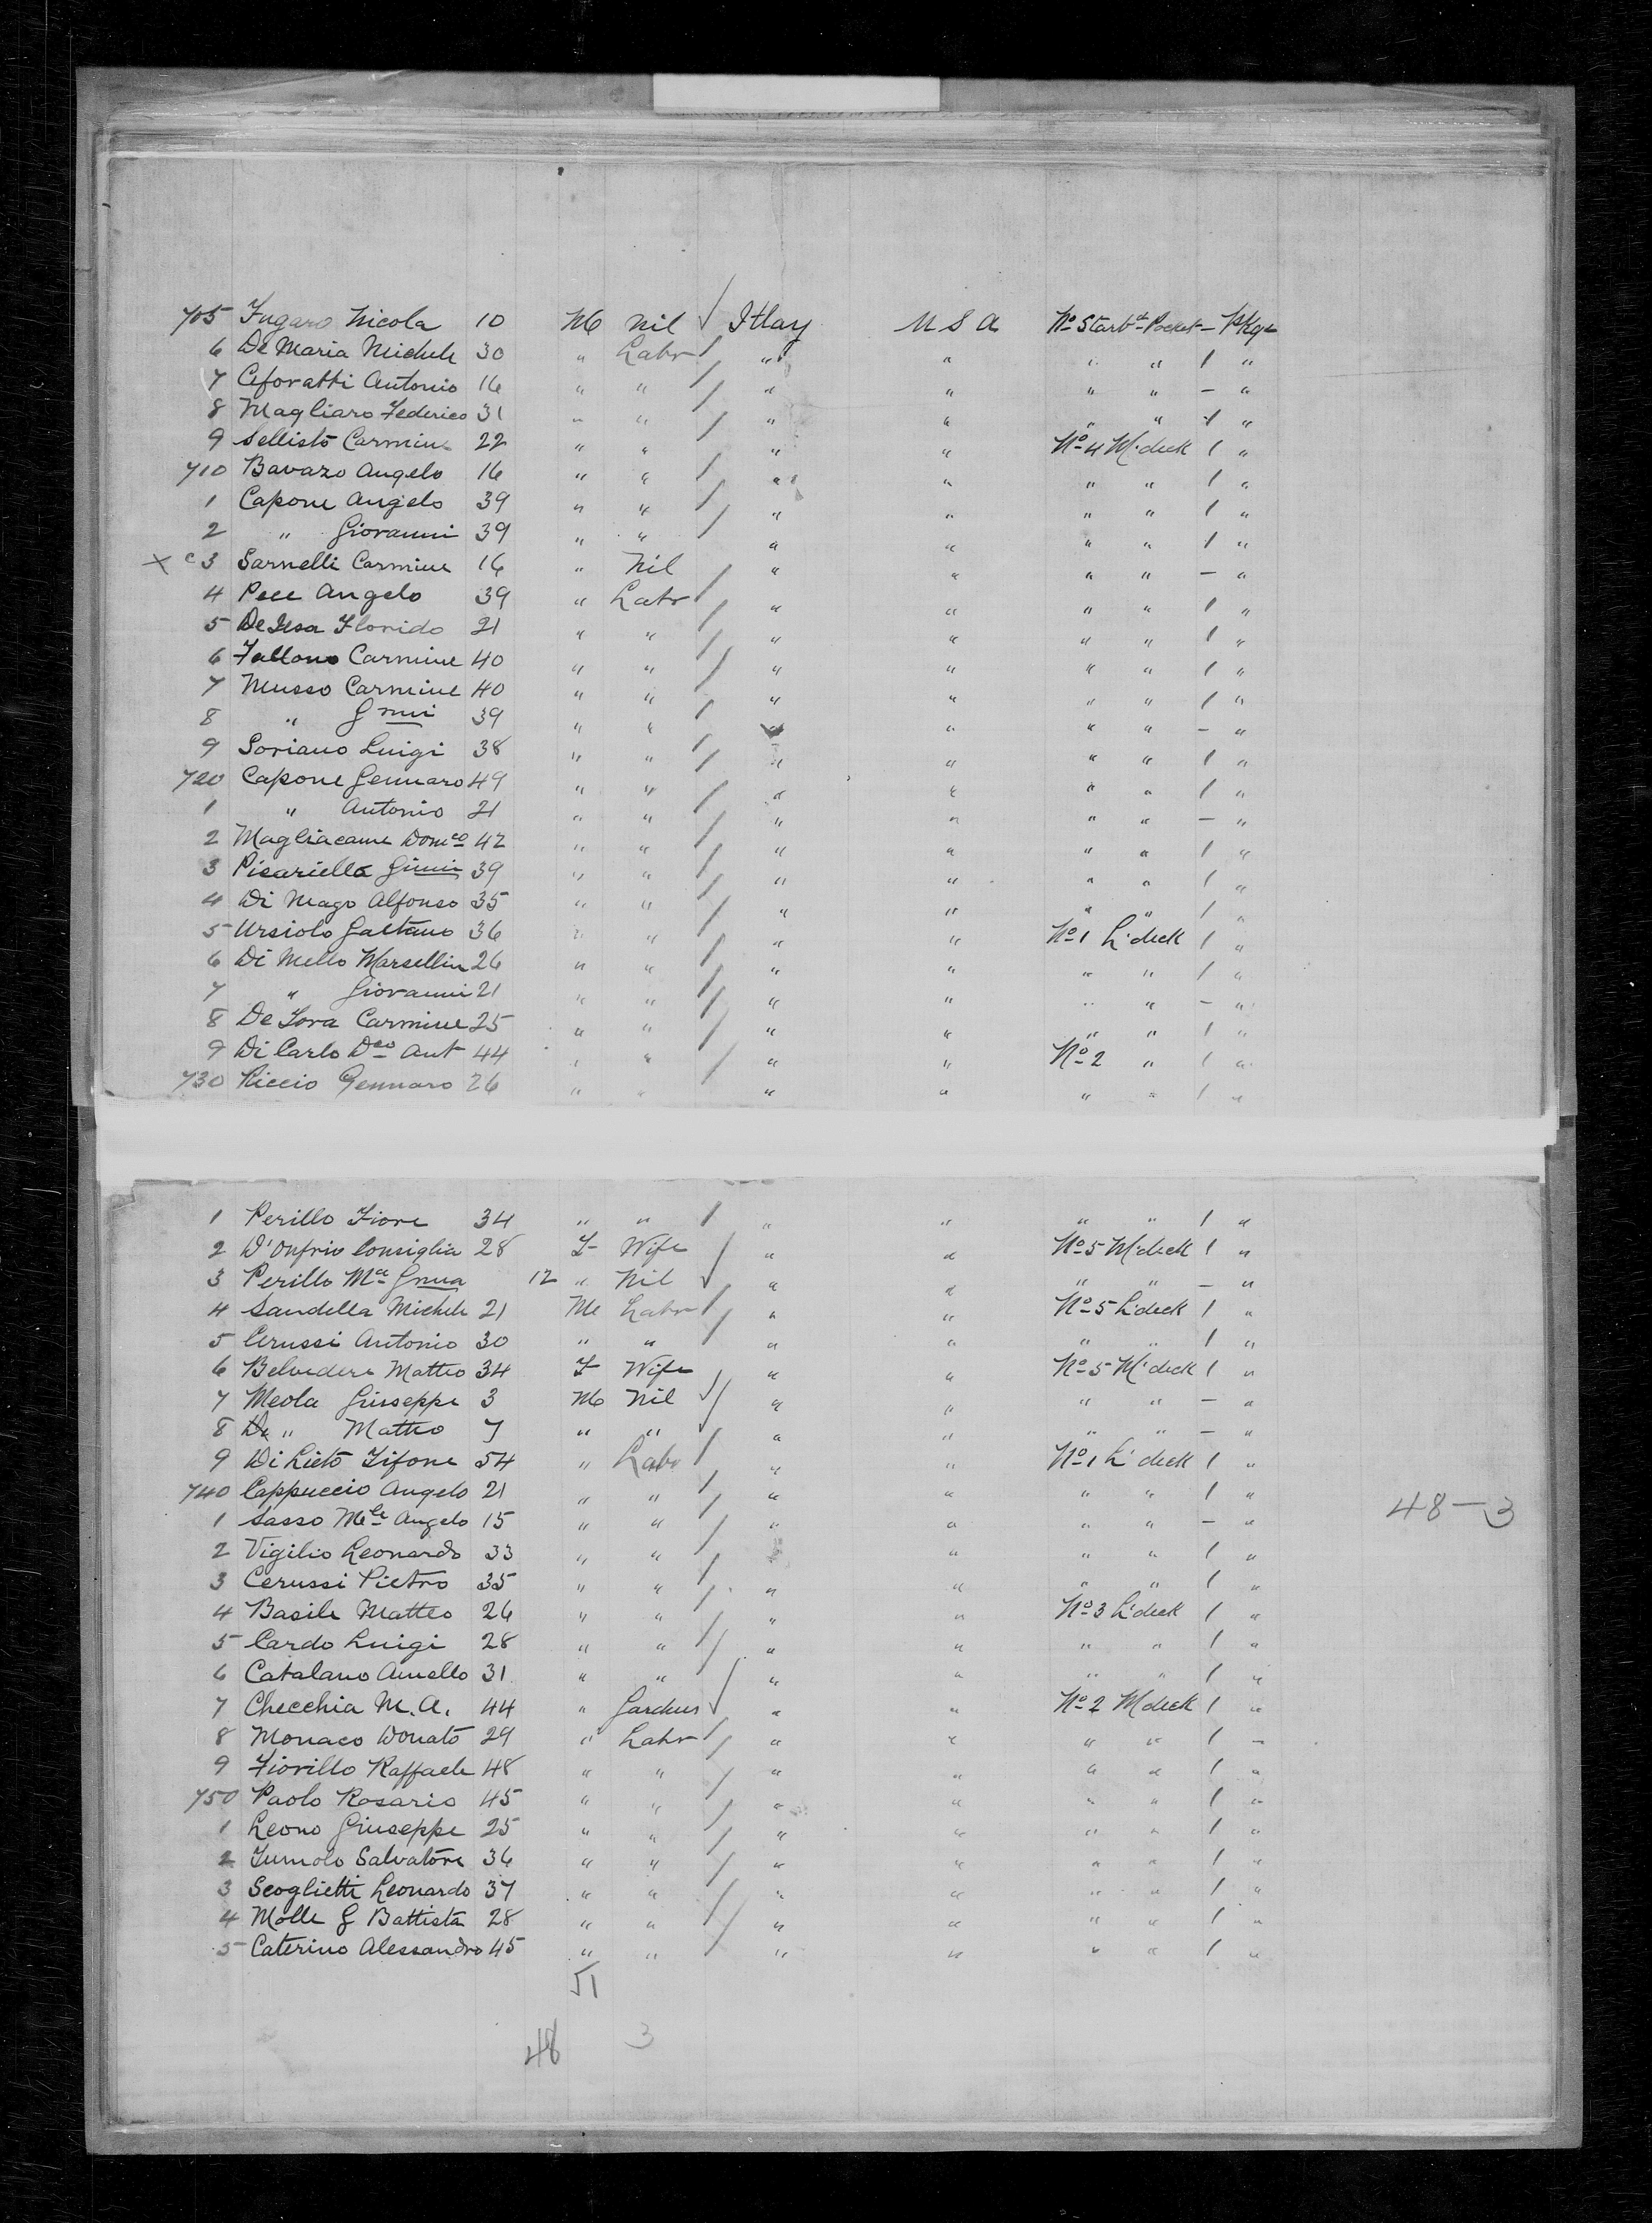 705 Fugaro Nicola 10 M Nil √ Itlay U S A No Starbd Pocket — Pkge
6 De Maria Michele 30 " Labr / " " " " 1 "
7 Ceforatti Antonio 16 " " / " " " " — "
8 Magliaro Federico 31 " " / " " " " 1 "
9 Sellisto Carmine 22 " " " " No 4 M. deck 1 "
710 Bavazo Angelo 16 " " / " " " " 1 "
1 Capone Angelo 39 " " / " " " " 1 "
2 " Giovanni 39 " " / " " " " 1 "
X c 3 Sarnelli Carmine 16 " Nil " " " " — "
4 Pece Angelo 39 " Labr / " " " " 1 "
5 De Florido 21 " " / " " " " 1 "
6 Fallono Carmine 40 " " / " " " " 1 "
7 Musso Carmine 40 " " / " " " " 1 "
8 " Gnni 39 " " / " " " — "
9 Soriano Luigi 38 " " / " " " " 1 "
720 Capone Gennaro 49 " " / " " " " 1 "
1 " Antonio 21 " " / " " " " — "
2 Magliacane Domco 42 " " / " " " " 1 "
3 Picariello 39 " " / " " " " 1 "
4 Di Mago Alfonso 35 " " / " " " " 1 "
5 Ursiolo Gaetano 36 " " / " " No 1 L. deck 1 "
6 Di Mello Marsellin 26 " " / " " " " 1 "
7 " Giovanni 21 " " / " " " " — "
8 De Carmine 25 " " / " " " " 1 "
9 Di Carlo Dco Ant 44 " " / " " No 2 " 1 "
730 Riccio Gennaro 26 " " " " " " 1 "
1 Perillo Fiore 34 " " / " " " " 1 "
2 D'Onfrio Consiglia 28 F Wife / " " No 5 M deck 1 "
3 Perillo Ma Gnna 12 " Nil √ " " " " — "
4 Sandella Michele 21 M Labr / " " No 5 L. deck 1 "
5 Cerussi Antonio 30 " " / " " " " 1 "
6 Belvedere Matteo 34 F Wife " " No 5 M. deck 1 "
7 Meola Giuseppe 3 M Nil √ / " " " " — "
8 De " Matteo 7 " " " " " " — "
9 Di Lieto Fifone 54 " Labr / " " No 1 L. deck 1 "
740 Cappuccio Angelo 21 " " / " " " " 1 "
1 Sasso Mle Angelo 15 " " / " " " " — " 48 — 3
2 Vigilio Leonardo 33 " " / " " " 1 "
3 Cerussi Pietro 35 " " / " " " " 1 "
4 Basile Matteo 26 " " / " " No 3 L. deck 1 "
5 Cardo Luigi 28 " " / " " " " 1 "
6 Catalano Aniello 31 " " " " " " 1 "
7 Checchia M. A. 44 " Gardner √ " " No 2 M deck 1 "
8 Monaco Donato 29 " Labr / " " " " 1 "
9 Fiorillo Raffaele 48 " " / " " " " 1 "
750 Paolo Rosario 45 " " / " " " " 1 "
1 Leono Giuseppe 25 " " / " " " " 1 "
2 Salvatore 36 " " / " " " " 1 "
3 Scoglietti Leonardo 37 " " / " " " " 1 "
4 Molle G Battista 28 " " / " " " " 1 "
5 Caterino Alessandro 45 " " " " " " 1 "
51
48 3